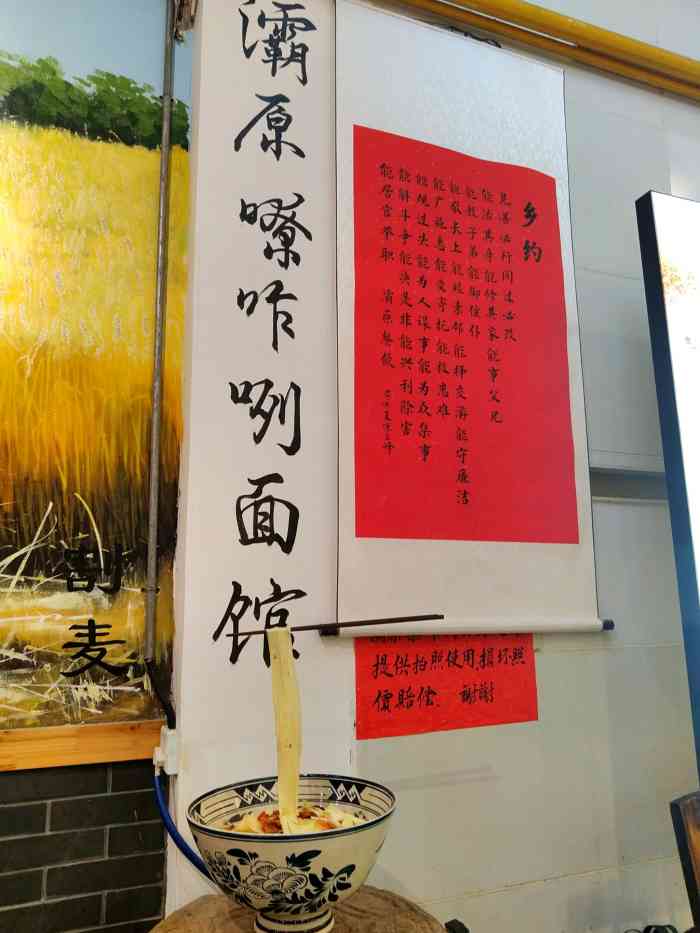 灞原嘹咋咧面馆
乡约
见善必行闻过必改
能治其身能修其家能事父兄
能教子弟能御僮仆
能敬长上能睦亲邻能择交游能守廉洁
能广施惠能受寄托能救患难
能规过失能为人谋事能为众集事
能解斗争能决是非能兴利除害
能居官举职
提供拍照使用,损坏照
價賠偿、谢谢
割麦